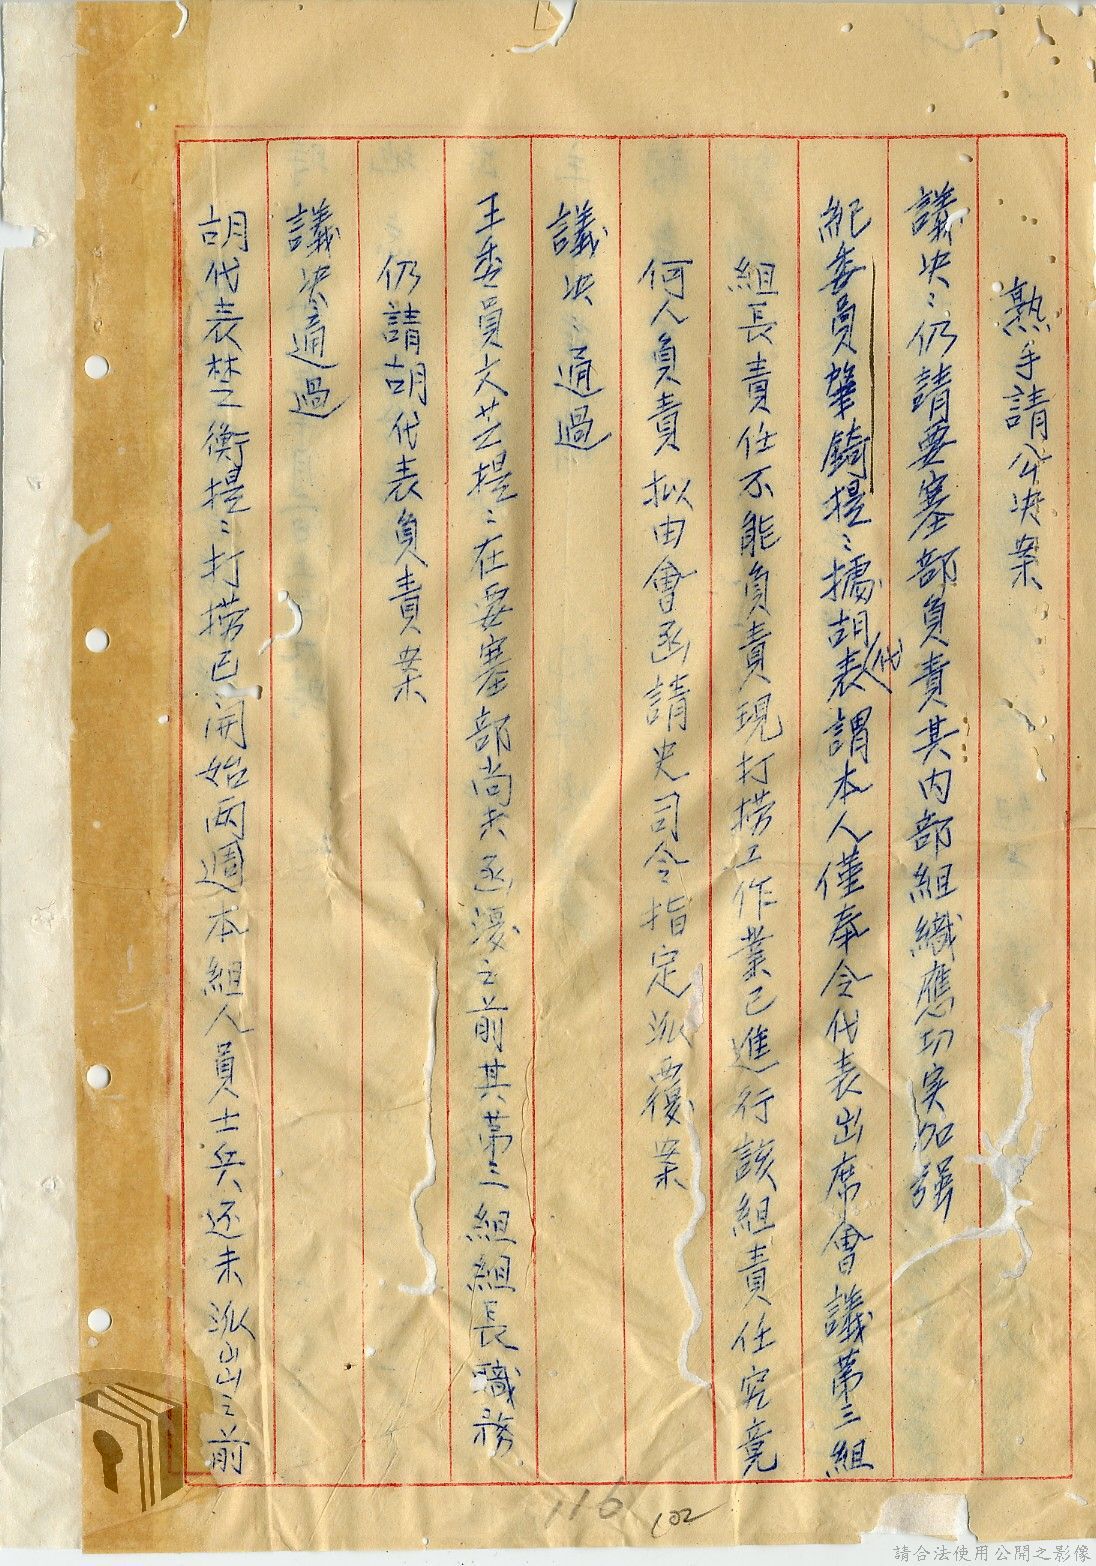 熟手請公決案
議決：仍請要塞部負責其内部組織應切实加強
紀委員肇錡提：據胡代表謂本人僅奉令代表出席會議第三組
組長責任不能負責現打撈工作業已進行該組責任究竟
何人負責擬由會函請史司令指定派覆案
議決：通過
王委員文芝提：在要塞部尚未函復之前其第三組組長職務
仍請胡代表負責案
議決：通過
胡代表楚衡提：打撈已開始两週本組人員士兵还未派出之前
116
102
請合法使用公開之影像